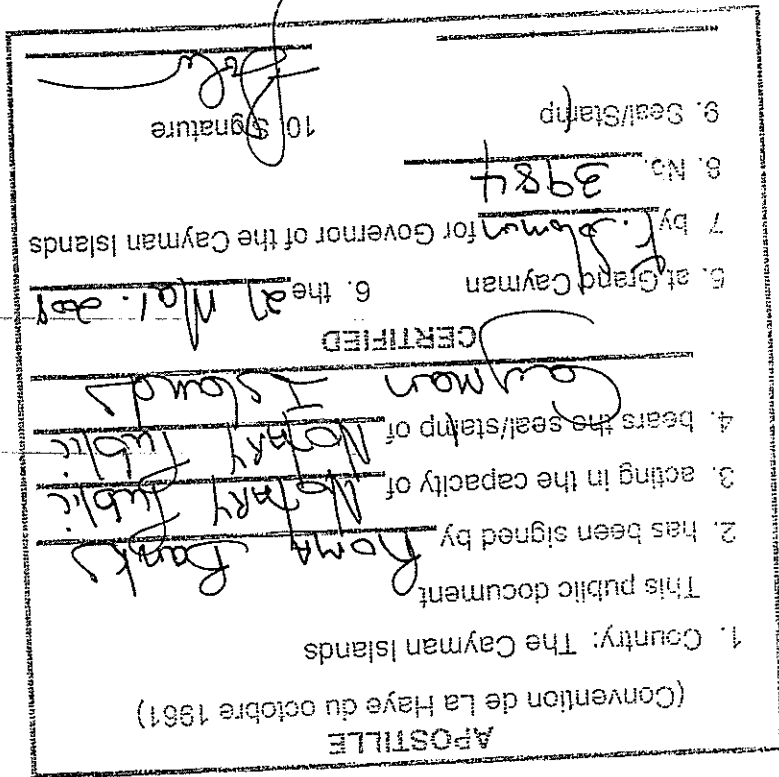 APOSTILLE
(Convention de La Haye du octobre 1961)
1. Country: The Cayman Islands
This public document
2. has been signed by Roma Banks
3. acting in the capacity of Notary Public
4. bears the seal/stamp of Notary Public
Cayman Islands
CERTIFIED
5. at Grand Cayman 6. the 27 Mar. 2008
7 by F. Solomon for Governor of the Cayman Islands
8. No. 3984
9. Seal/Stamp
10 Signature